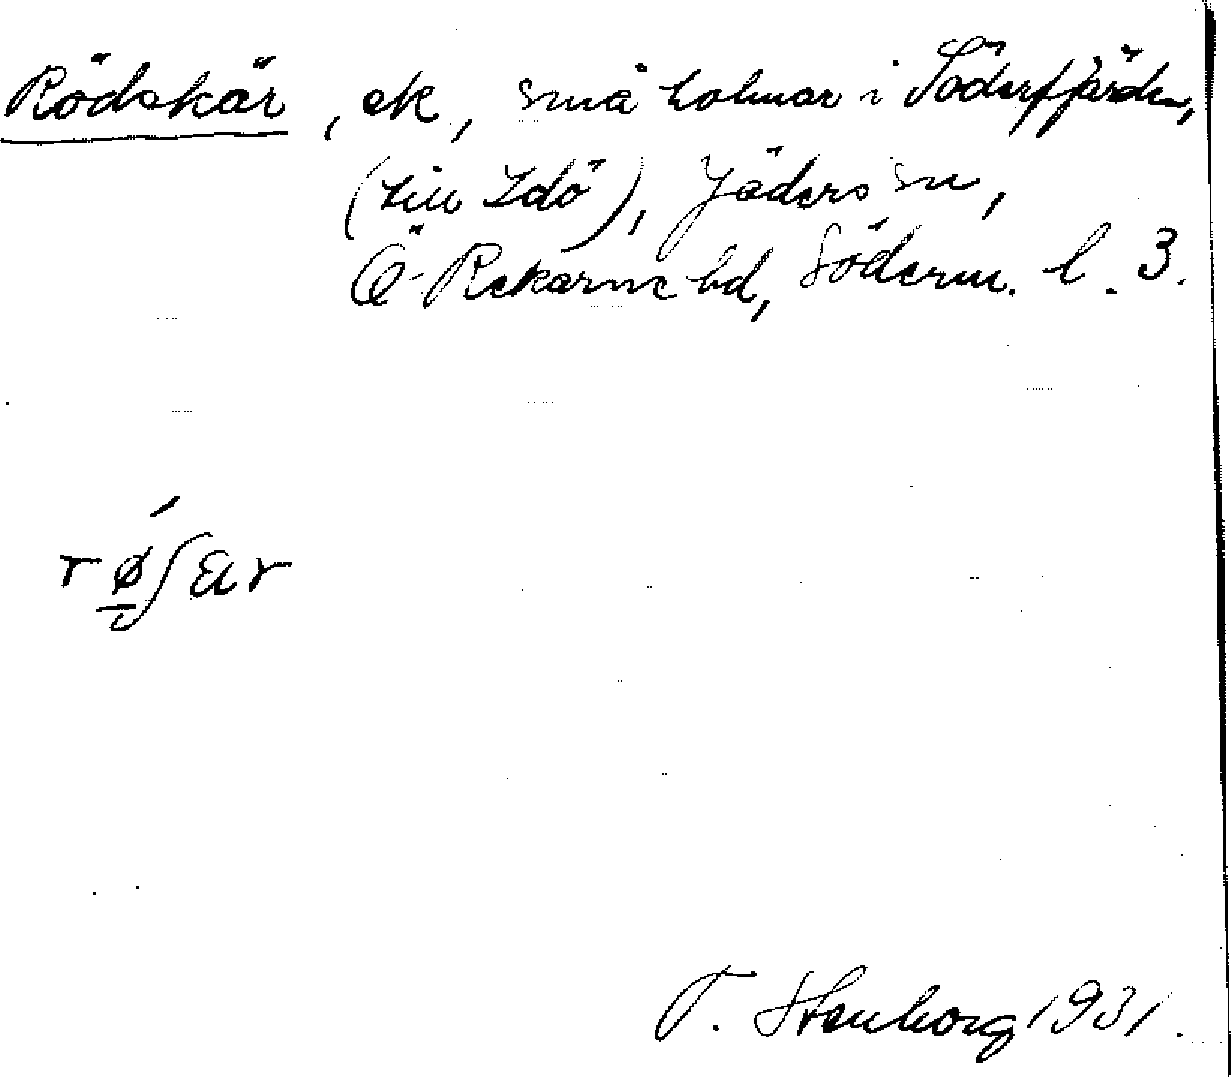 Rödskär, sk, små holmar i Söderfjärden,
(till Idö), Jäders sn,
Ö-Rekarne hd, Söderm. l. 3.
rǿ̱ʃær
T. Stenborg 1931.